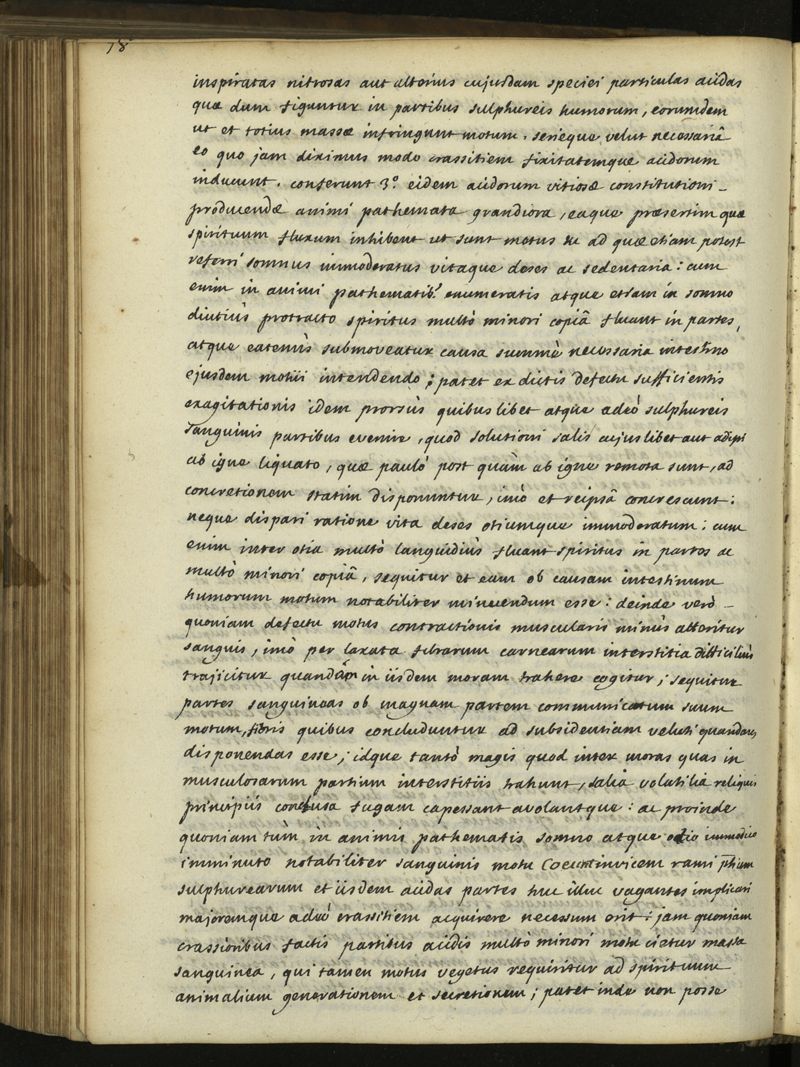 78
inspiratas nitrosas aut alterius cujusdam speciei particulas acidas
quæ dum figuntur in partibus sulphureis humorum, eorumdem
ut et totius massæ infringunt motum, serieque velut necessariâ
eo quo jam diximus modo crassitiem fixitatemque acidorum
inducunt. conferunt 3.º eidem acidorum vitiosæ constitutioni _
producendæ animi pathemata grandiora, eaque præsertim quæ
spirituum fluxum inhibent ut sunt metus &c ad quæ etiam potest
referri somnus immoderatus vitaque deses ac sedentaria: cum
enim in animi pathematib.s enumeratis atque etiam in somno
diutiùs protracto spiritus multò minori copiâ fluant in partes,
atque eatenùs submoveatur causa summè necessaria intestino
ejusdem motui intendendo; patet ex dictis defectu sufficientis
exagitationis idem prorsùs quibuslibet atque adeò sulphureis
sanguinis partibus evenire, quod solutioni salis cujuslibet aut adipi
ab igne liquato, quæ paulò post quàm ab igne remota sunt, ad
concretionem statim disponuntur, imò et reipsâ concrescunt:
neque dispari ratione vita deses otiumque immoderatum; cum
enim inter otia multò languidiùs fluant spiritus in partes ac
multò minori copiâ, sequitur et eam ob causam intestinum
humorum motum notabiliter minuendum esse: deinde verò _
quoniam defectu motus contractionis muscularis minùs atteritur
sanguis, imò per laxata fibrarum carnearum interstitia difficiliùs
trajicitur quandam in iisdem moram trahere cogitur; sequitur
partes sanguineas ob magnam partem communicatum suum
motum, fibris quibus concluduntur ad subsidentiam veluti quandam
disponendas esse; idque tantò magis quod inter moras quas in
muscularum partium interstitiis trahunt, salia volatilia reliquis
principiis confusa fugam capessant avolantque: ac proinde
quoniam tùm in animi pathematis somno atque otio immodico
imminuto notabiliter sanguinis motu coeunt invicem rami ptium
sulphurearum et iisdem acidas partes huc illuc vagantes implicari
majoremque adeò crassitiem acquirere necessum erit: jam quoniam
crassioribus factis partibus acidis multò minori motu cietur massa
sanguinea, qui tamen motus vegetus requiritur ad spirituum
animalium generationem et secretionem; patet inde non posse